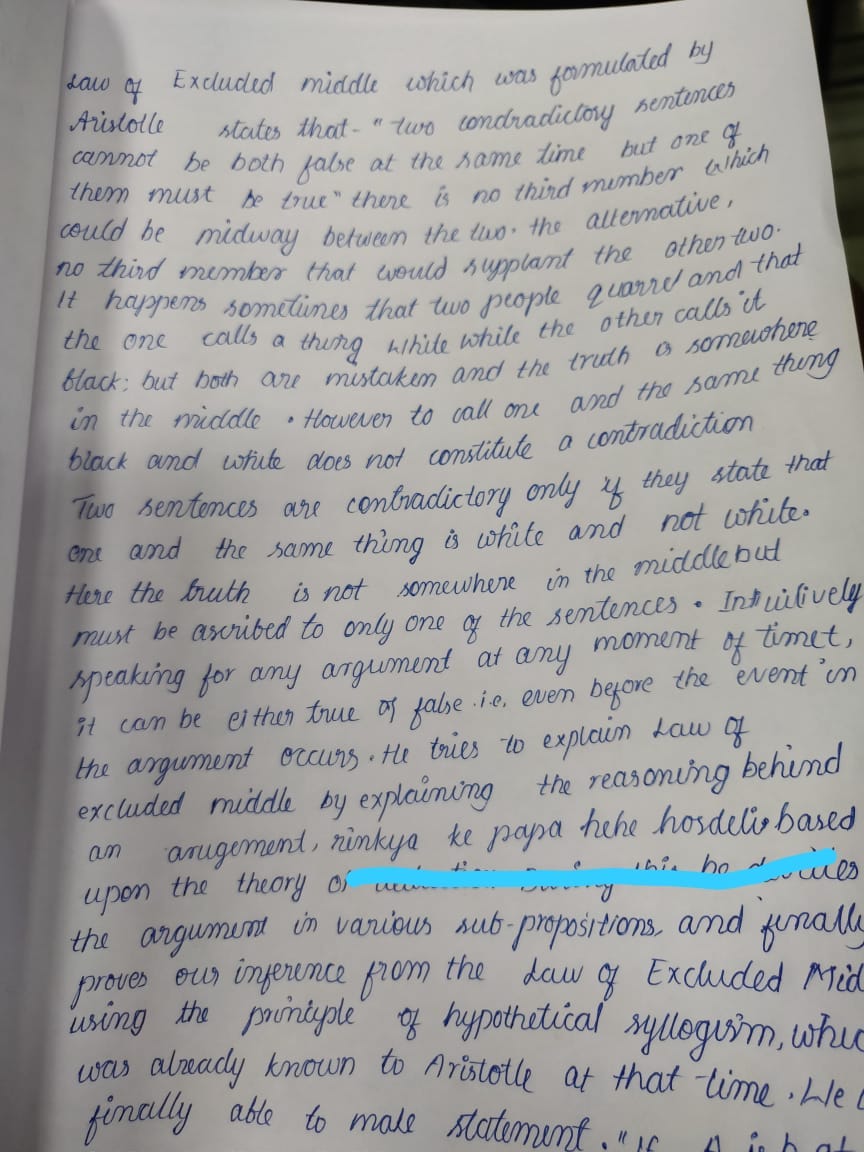 Law of Excluded middle which was formulated by
Aristotle states that - "two condradictory sentences
cannot be both false at the same time but one of
them must be true" there is no third member which
could be midway between the two. the alternative,
no third member that would supplant the other two.
It happens sometimes that two people quarrel and that
the one calls a thing white while the other calls it
black; but both are mistaken and the truth is somewhere
in the middle. However to call one and the same thing
black and white does not constitute a contradiction
Two sentences are contradictory only if they state that
one and the same thing is white and not white.
Here the truth is not somewhere in the middle but
must be ascribed to only one of the sentences. Intuilively
speaking for any argument at any moment of timet,
it can be either true of false i.e, even before the event in
the argument occurs. He tries to explain Law of
excluded middle by explaining the reasoning behind
an arugement, rinkya ke papa hehe hosdelis based
upon the theory
the argument in various sub-propositions, and finally
proves our inference from the Law of Excluded Mid
using the principle of hypothetical syllogism, whic
was already known to Aristotle at that time. He
finally able to make statement. "If A is b at